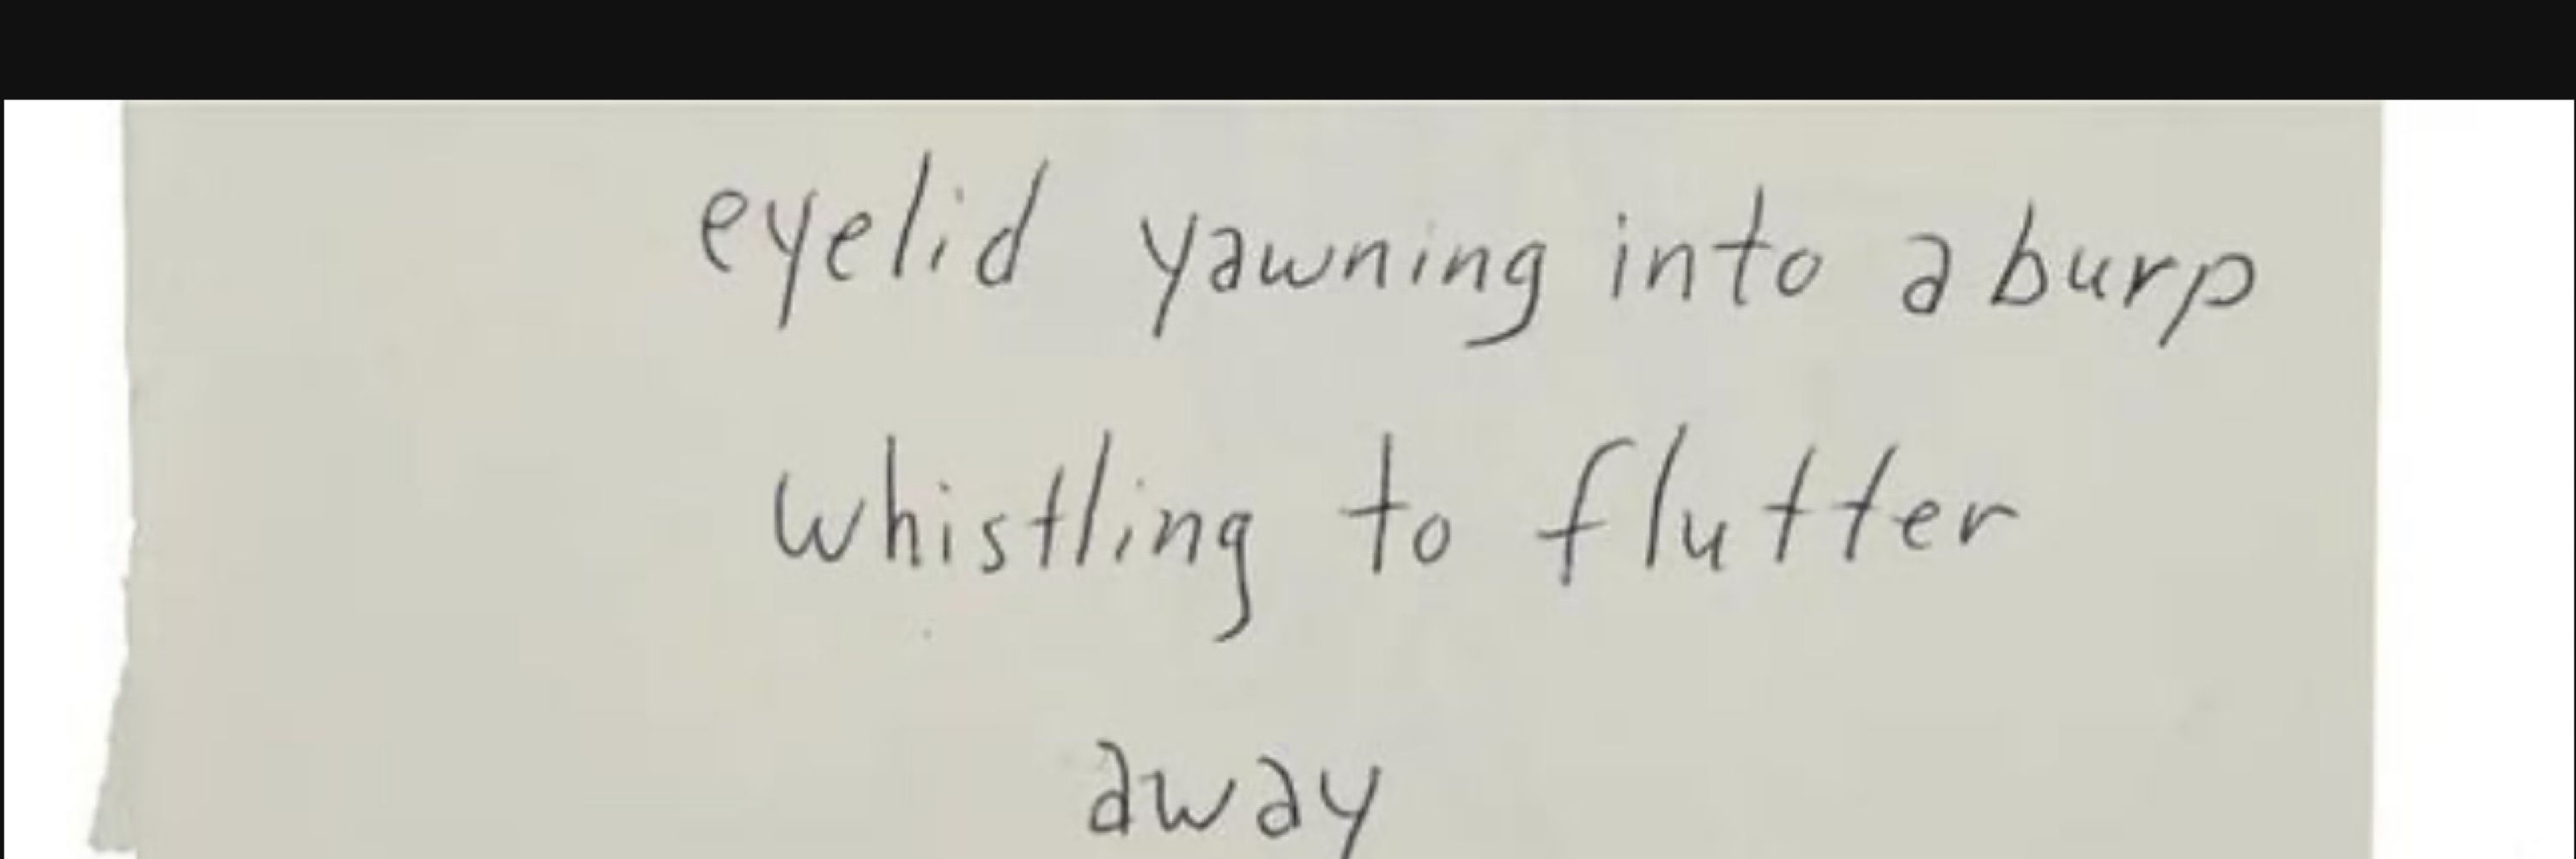 eyelid yawning into a burp
whistling to flutter
away